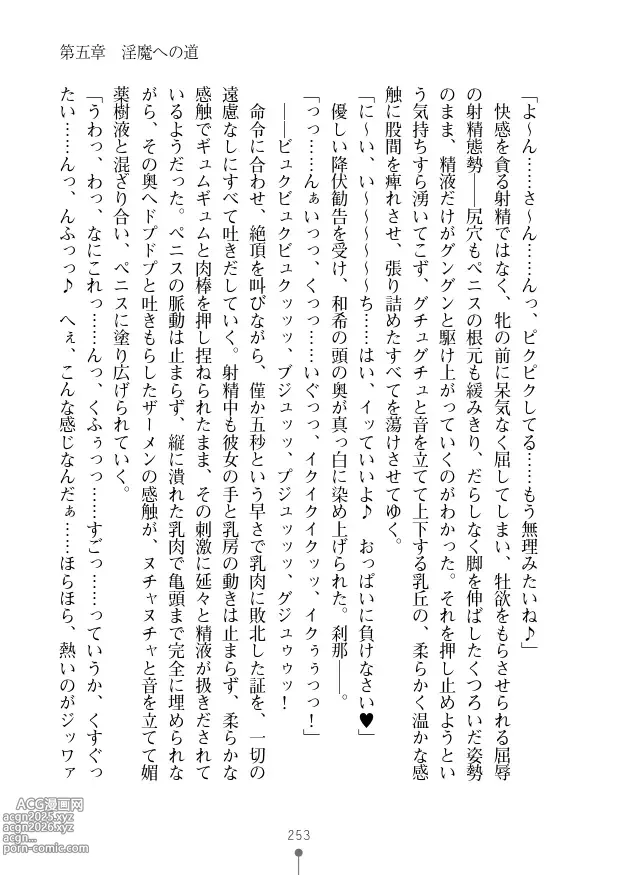 第五章　淫魔への道
「よ〜ん……さ〜ん……んっ、ピクピクしてる……もう無理みたいね♪」
　快感を貪る射精ではなく、牝の前に呆気なく屈してしまい、牡欲をもらさせられる屈辱
の射精態勢――尻穴もペニスの根元も緩みきり、だらしなく脚を伸ばしたくつろいだ姿勢
のまま、精液だけがグングンと駆け上がっていくのがわかった。それを押し止めようとい
う気持ちすら湧いてこず、グチュグチュと音を立てて上下する乳丘の、柔らかく温かな感
触に股間を痺れさせ、張り詰めたすべてを蕩けさせてゆく。
「に〜い、い〜〜〜〜〜〜ち……はい、イッていいよ♪　おっぱいに負けなさい♥」
　優しい降伏勧告を受け、和希の頭の奥が真っ白に染め上げられた。刹那――。
「っっ……んぁいっっ、くっっ……いぐっっ、イクイクイクッッ、イクぅぅっっ！」
　――ビュクビュクビュクッッッ、ブジュッッ、プジュッッッッ、グジュゥゥッ！
　命令に合わせ、絶頂を叫びながら、僅か五秒という早さで乳肉に敗北した証を、一切の
遠慮なしにすべて吐きだしていく。射精中も彼女の手と乳房の動きは止まらず、柔らかな
感触でギュムギュムと肉棒を押し捏ねられたまま、その刺激に延々と精液が扱きだされて
いるようだった。ペニスの脈動は止まらず、縦に潰れた乳肉で亀頭まで完全に埋められな
がら、その奥へドプドプと吐きもらしたザーメンの感触が、ヌチャヌチャと音を立てて媚
薬樹液と混ざり合い、ペニスに塗り広げられていく。
「うわっ、わっ、なにこれっ……んっ、くふぅっっ……すごっ……っていうか、くすぐっ
たい……んっ、んふっっ♪　へぇ、こんな感じなんだぁ……ほらほら、熱いのがジッワァ
253
ACG漫画网
acgn2025.xyz
acgn2026.xyz
acgn...
porn-comic.com